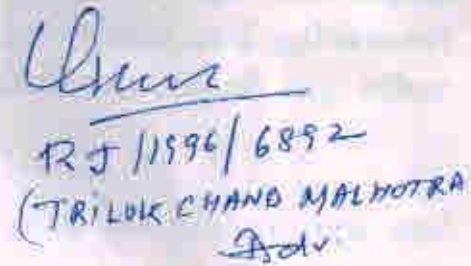 RJ/1996/6892
(TRILOK CHAND MALHOTRA
Adv.